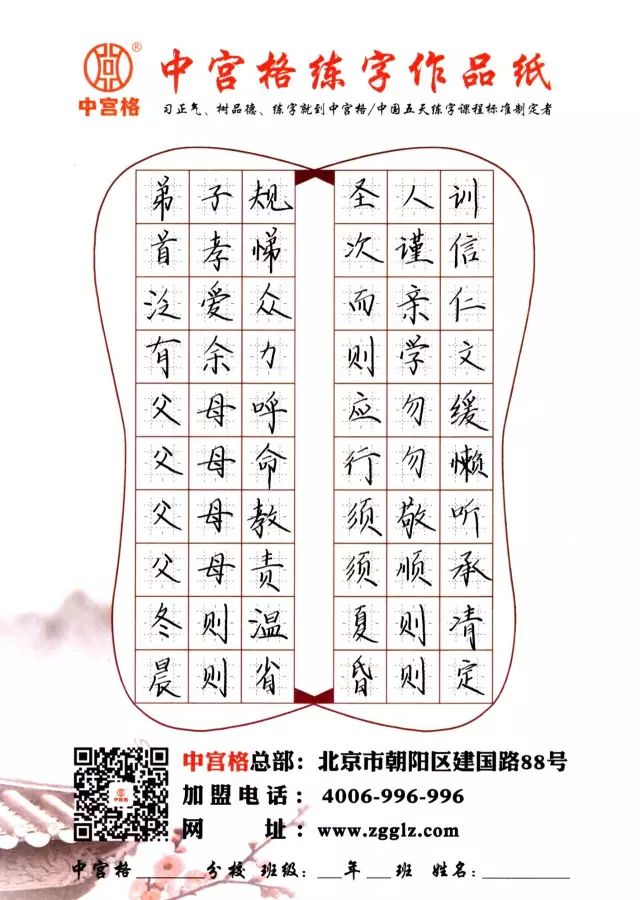 中宫格®
中宫格练字作品纸
习正气、树品德、练字就到中宫格/中国五天练字课程标准制定者
弟子规 圣人训
首孝悌 次谨信
泛爱众 而亲仁
有余力 则学文
父母呼 应勿缓
父母命 行勿懒
父母教 须敬听
父母责 须顺承
冬则温 夏则凊
晨则省 昏则定
中宫格总部：北京市朝阳区建国路88号
加盟电话：4006-996-996
网址：www.zgglz.com
中宫格
中宫格______分校 班级：___年___班 姓名：__________